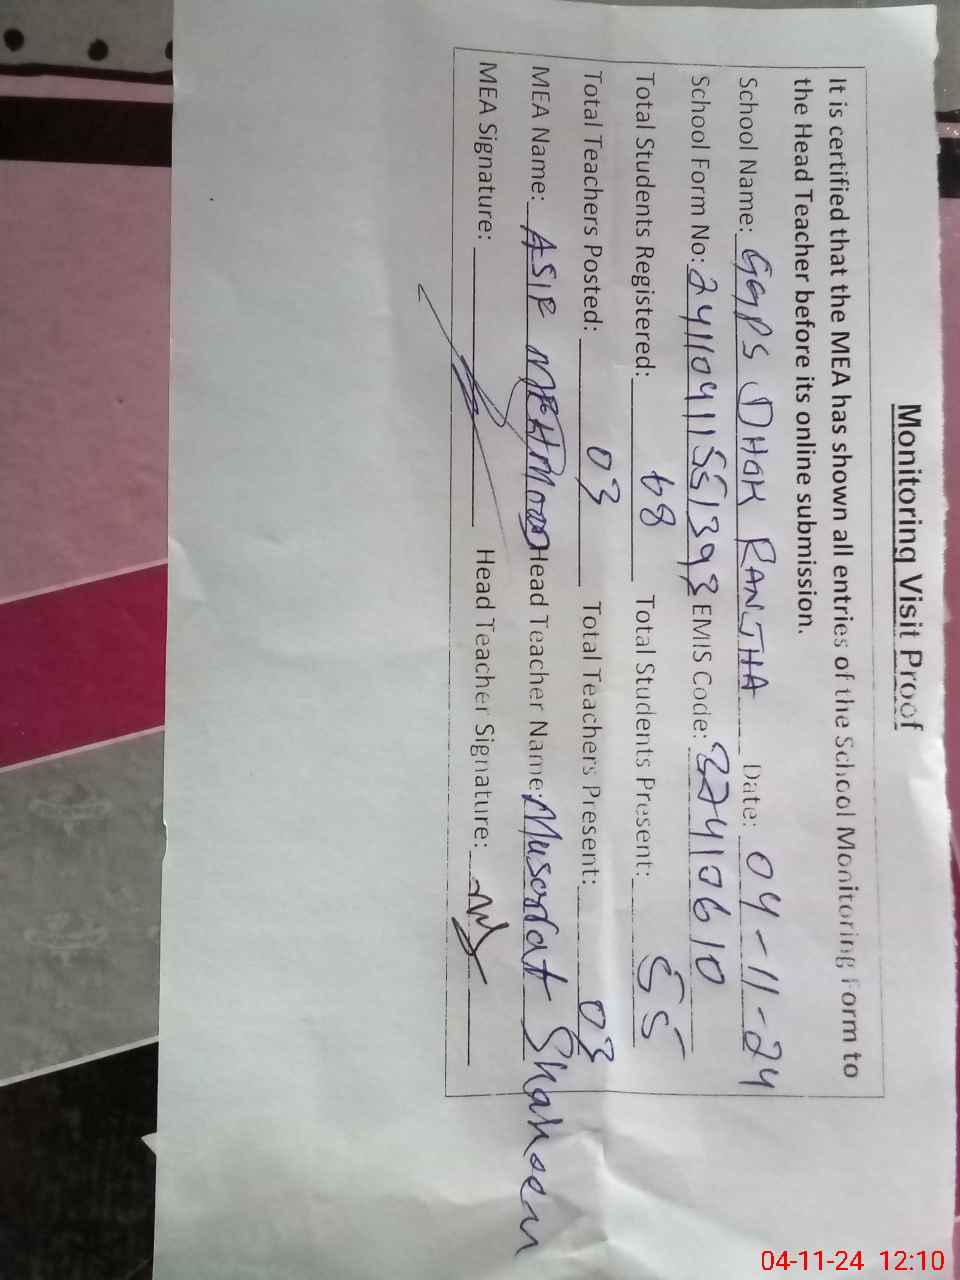 Monitoring Visit Proof
It is certified that the MEA has shown all entries of the School Monitoring Form to
the Head Teacher before its online submission.
School Name: GGPS DHOK RANJHA Date: 04-11-24
School Form No: 24110411551393 EMIS Code: 37410610
Total Students Registered: 68 Total Students Present: 55
Total Teachers Posted: 03 Total Teachers Present: 03
MEA Name: ASIF MEHMOOD Head Teacher Name: Musarrat Shaheen
MEA Signature: Head Teacher Signature:
04-11-24 12:10